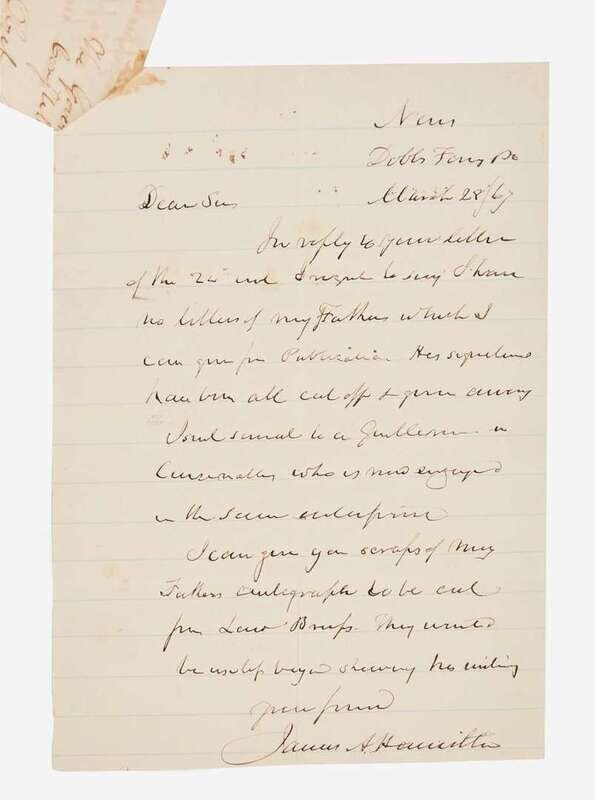 Nevis
Dobbs Ferry Po
March 28/67
Dear Sir
In reply to your letter
of the 22d inst I regret to say I have
no letters of my Fathers which I
can give for Publication His signatures
have been all cut off & given away
I sent several to a Gentleman in
Cincinnatti who is now engaged
in the same enterprise
I can give you scraps of my
Fathers autograph to be cut
from Law Briefs. They would
be useless beyond shewing his writing
your friend
James A. Hamilton